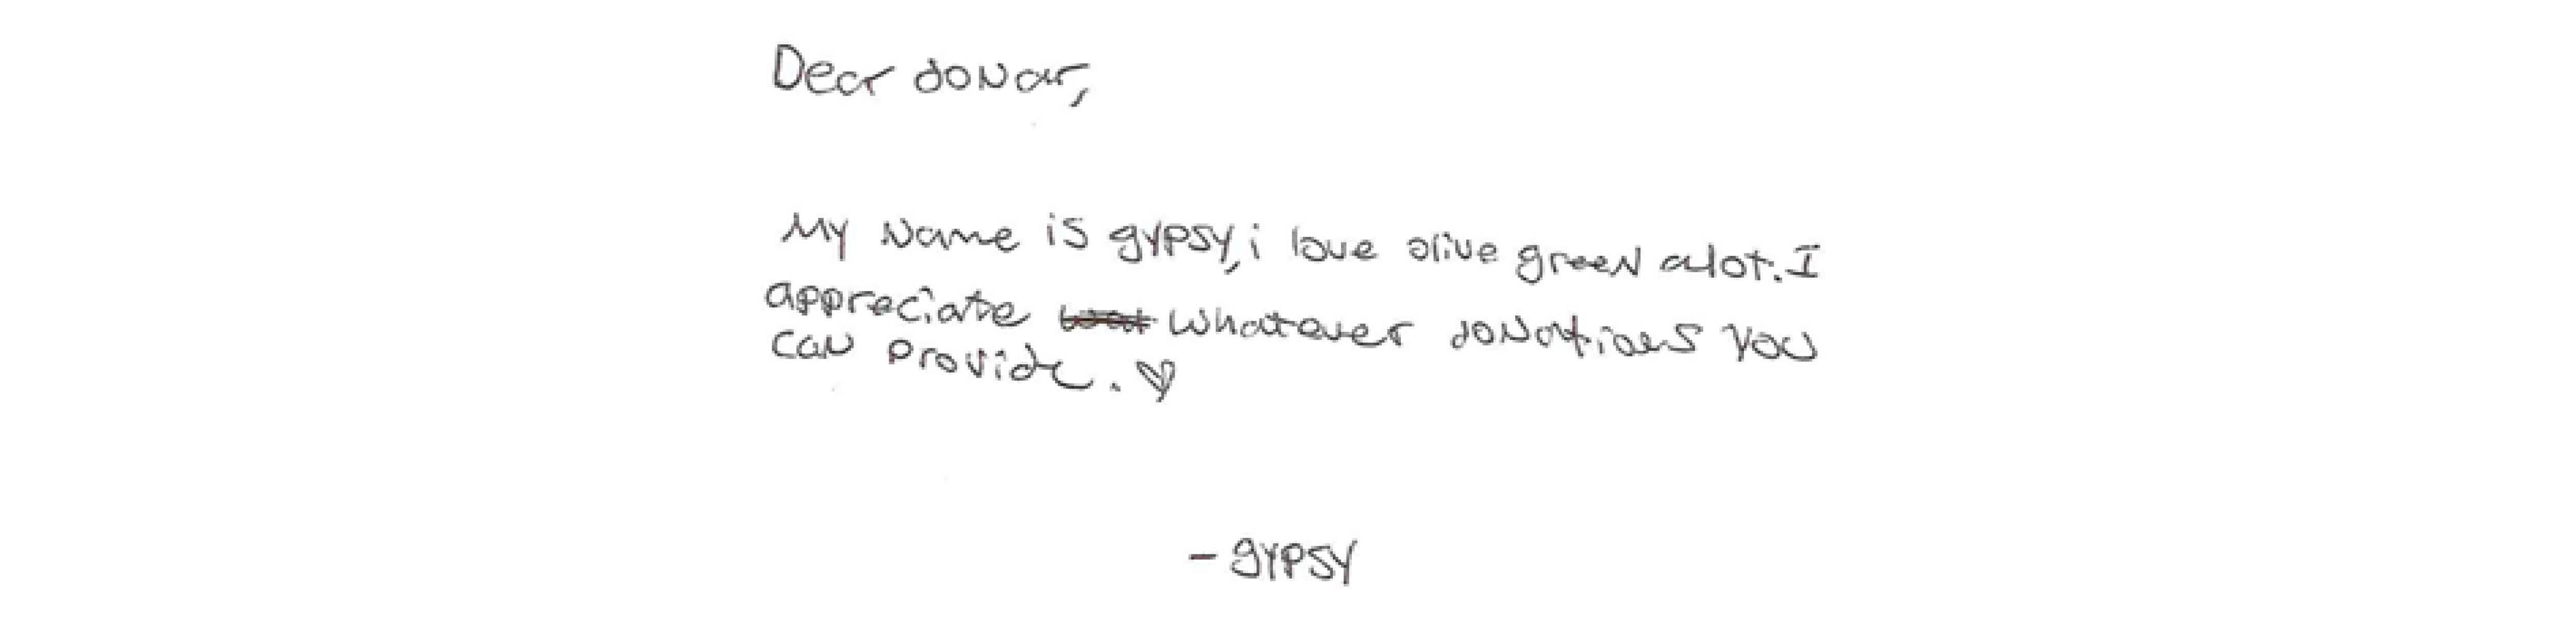 Dear donar,
My Name is gypsy, i love olive green alot. I
appreciate whatever donations you
can provide. ♡
- gypsy